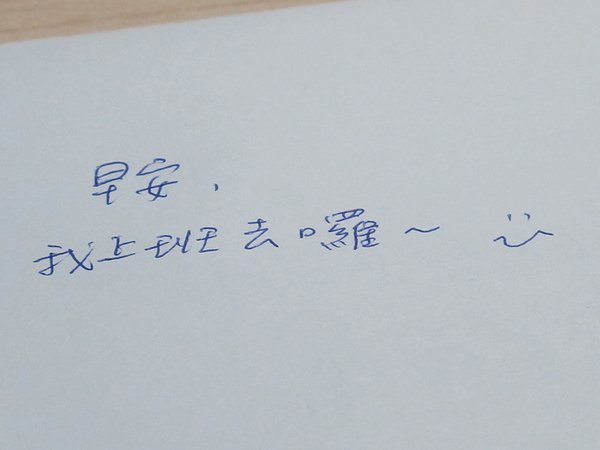 早安，
我上班去囉～ ü